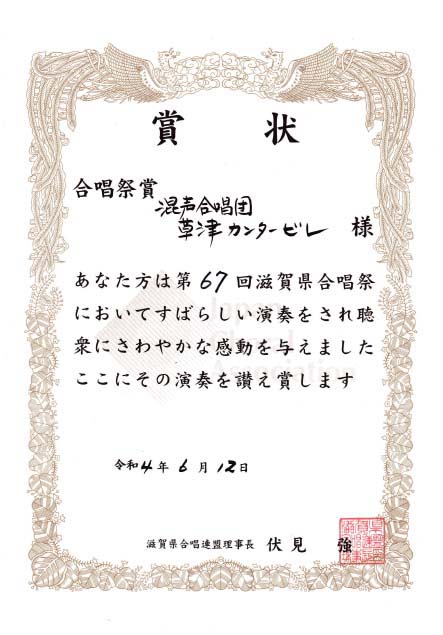 賞状
合唱祭賞
混声合唱団
草津カンタービレ 様
あなた方は第67回滋賀県合唱祭
においてすばらしい演奏をされ聴
衆にさわやかな感動を与えました
ここにその演奏を讃え賞します
Japan
Choral
Association
令和4年6月12日
滋賀県合唱連盟理事長 伏見 強